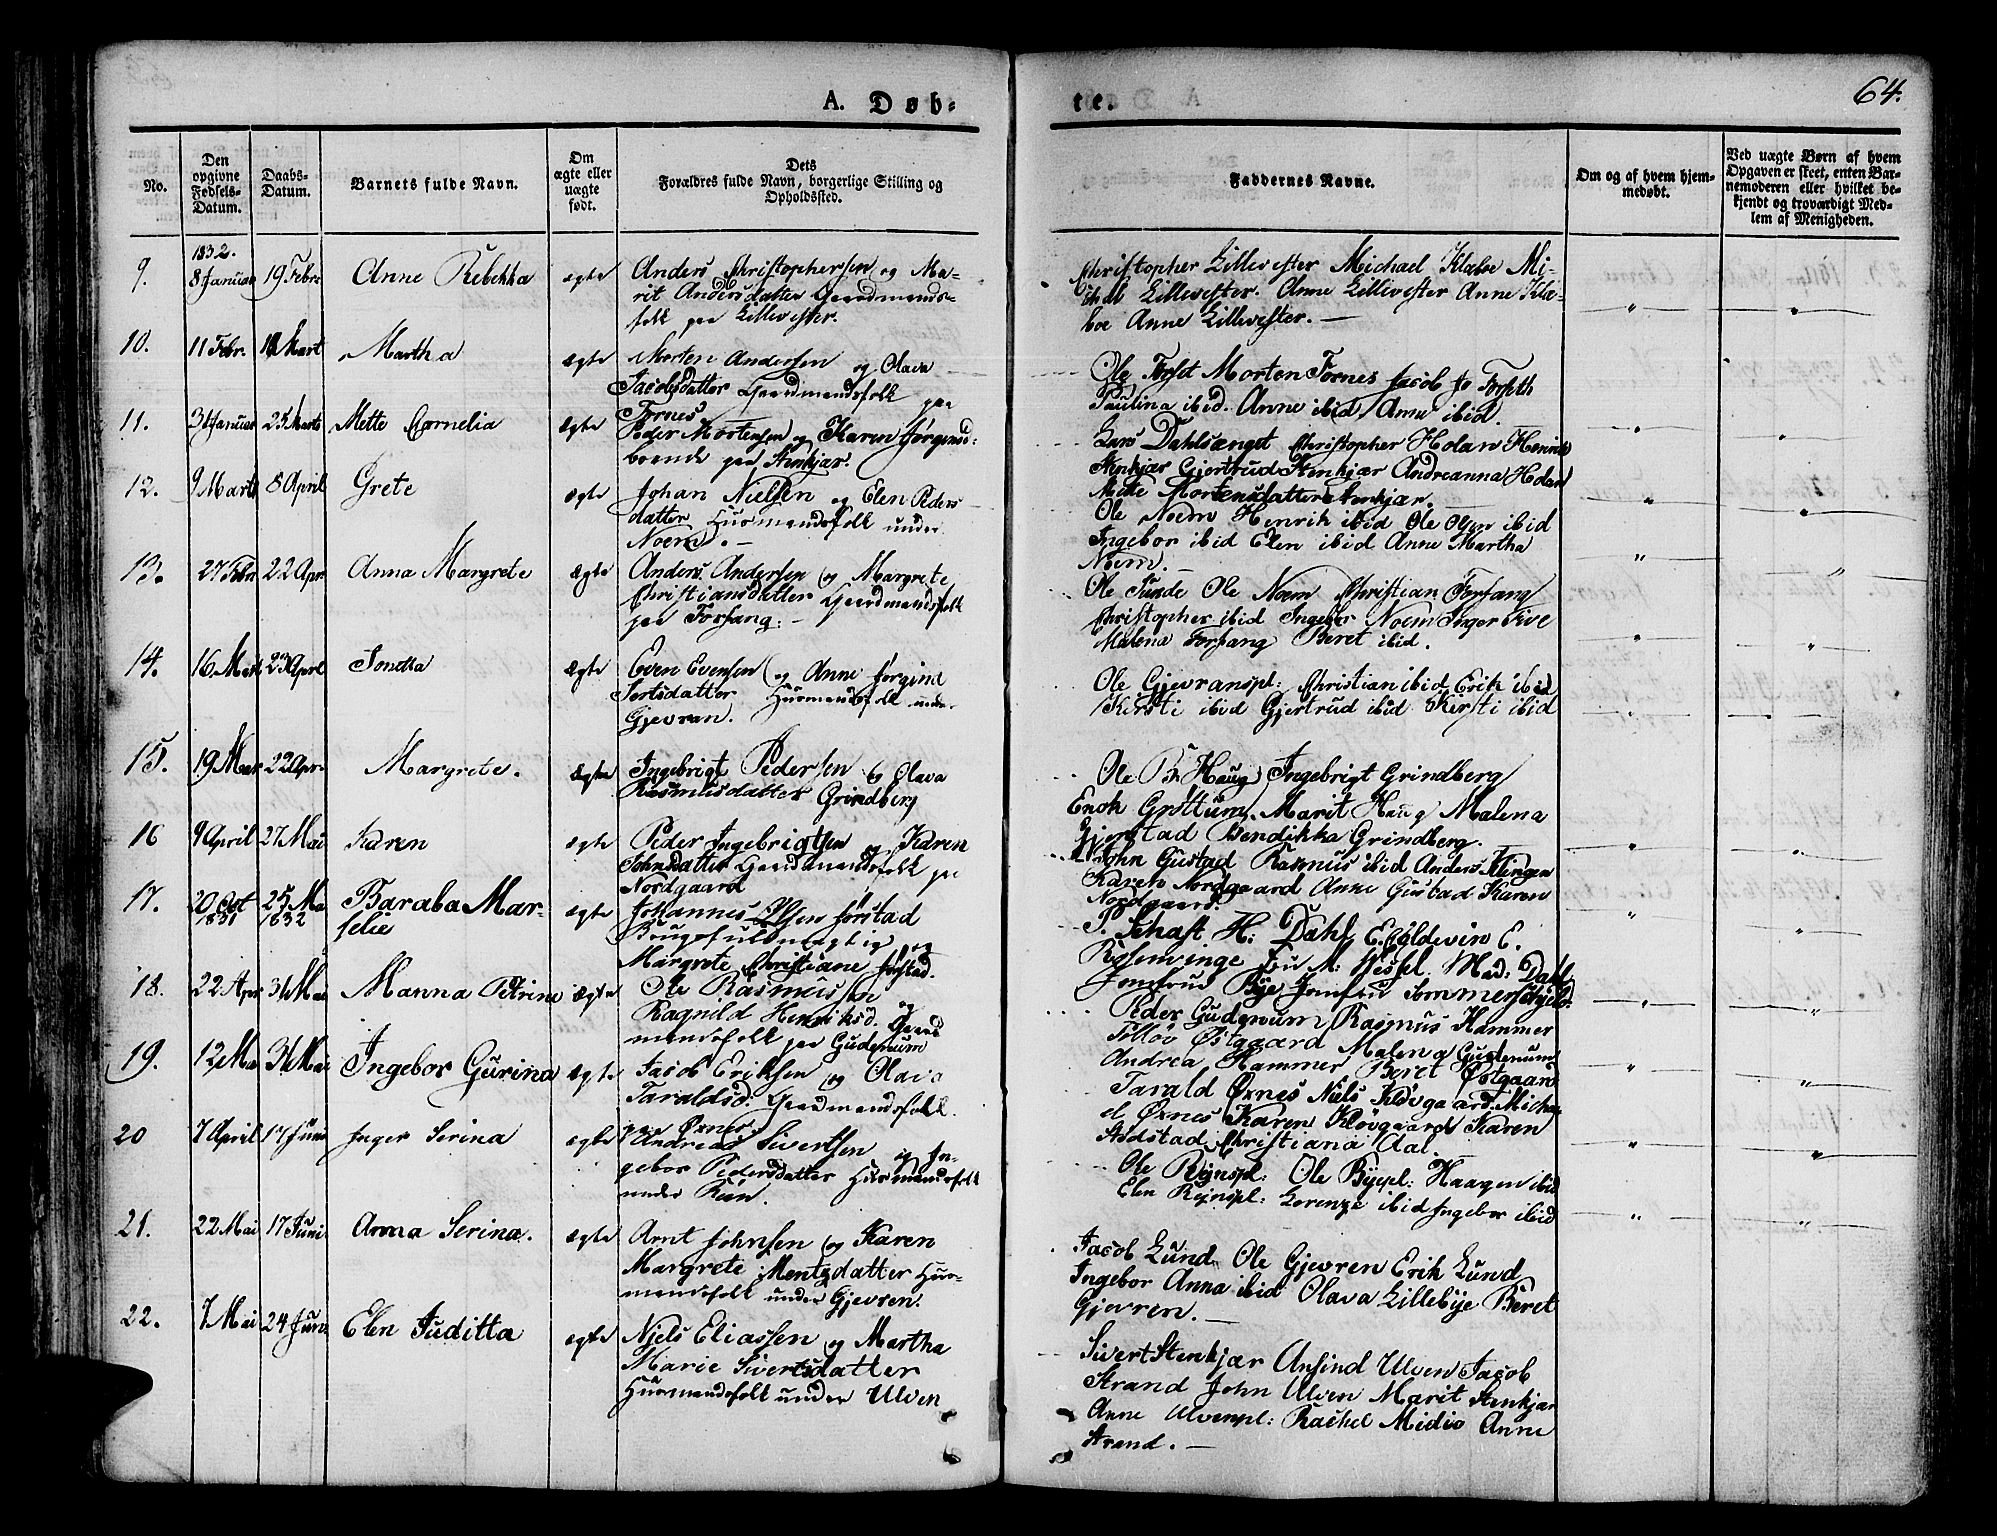 A. Døb-
te.
64.
No.
Den opgivne Fødsels-Datum.
Daabs-Datum.
Barnets fulde Navn.
Om ægte eller uægte født.
Dets Forældres fulde Navn, borgerlige Stilling og Opholdssted.
Faddernes Navne.
Om og af hvem hjem-
medøbt.
Ved uægte Børn af hvem
Opgaven er skeet, enten Bar-
nemoderen eller hvilket be-
kjendt og troværdigt Med-
lem af Menigheden.
1832.
9. 8 Januar 19 Febr Anne Rebekka ægte Anders Christophersen og Ma-
rit Andersdatter Gaardmands-
folk paa Lillevester.
Christopher Lillevester Michael Klæboe Mi-
chal Lillevester. Anne Lillevester Anne Klæ-
boe Anne Lillevester. —
10. 11 Febr. Mart Martha ægte Morten Andersen og Olava
Jacobsdatter Gaardmandsfolk paa
Fornes
Ole Morten Fornes Jacob
Paulina ibid. Anne ibid Anne ibid.
11. 31 Januar 25 Marts Mette Cornelia ægte Peder Mortensen og Karen Jørgensd:
boende paa Stenkjær.
Lars Dahlsænget Christopher Holan Henrik
Stenkjær Gjertrud Stenkjær Andreanna Holan
Mette Mortensdatter Stenkjær.
12. 9 Marts 8 April Grete ægte Johan Nielsen og Elen Peders
datter Husmandsfolk under
Noem. —
Ole Noem Henrik ibid Ole Olsen ibid
Ingebor ibid Elen ibid Anne Martha
Noem. —
13. 27 Febr 22 Apr Anna Margrete ægte Anders Andersen og Margrete
Christiansdatter Gaardmandsfolk
paa Forfang. —
Ole Sunde Ole Noem Christian Forfang
Christopher ibid Ingebor Noem Inger Five
Malena Forfang Beret ibid.
14. 16 Mart 23 April Jonetta ægte Even Evensen og Anne Jørgind
Husmandsfolk under
Gjevran.
Ole Gjevranspl: Christian ibid Erik ibid
Kirsti ibid Gjertrud ibid Kirsti ibid
15. 19 Mar 22 Apr. Margrete. ægte Ingebrigt Pedersen og Olava
Rasmusdatter Grindberg
Ole Haug Ingebrigt Grindberg
Enok Grøttum. Marit Haug Malena
Gjerstad Bendikka Grindberg.
16 9 April 27 Mai Karen ægte Peder Ingebrigtsen og Karen
Johnsdatter Gaardmandsfolk paa
Nordgaard
John Gustad Rasmus ibid Anders Klingen
Karen Nordgaard Anne Gustad Karen
Nordgaard.
17. 20 Oct 1831 25 Ma 1832 Baraba Mar-
selie ægte Johannes Olsen Jørstad
Brugsfuldmægtig og
Margrete Christiane Jørstad.
P. Schaft H. Dahl E. Coldevin E.
Rosenvinge Fru M. Wessel. Mad: Dahl
Jomfrue Bye Jomfru Sommerschjeld.
18. 22 Apr 31 Mai Manna Petrine ægte Ole Rasmussen og
Ragnild Henriksd. Gaard
mandsfolk paa Gudenum
Peder Gudenum Rasmus Hammer
Østgaard Malena Gudenum
Andrea Hammer Beret Østgaard
19. 12 Ma 31 Mai Ingebor Gurina ægte Jacob Eriksen og Olava
Taraldsd: Gaardmandsfolk.
paa Øxnes
Tarald Øxnes Niels Kløvgaard. Micha-
el Øxnes Karen Kløvgaard Karen
Stodstad Christiana Aal.
20 7 April 17 Juni Inger Serina ægte Andreas Sivertsen og In-
gebor Pedersdatter Husmandsfolk
under Rein.
Ole Rejnspl: Ole Byepl: Haagen ibid
Elen Rejnspl: Lorense ibid Ingebor ibid
21. 22 Mai 17 Juni Anna Serina. ægte Arnt Johnsen og Karen
Margrete Mentzdatter Hus-
mandsfolk under Gjevren.
Jacob Lund Ole Gjevren Erik Lund
Ingebor Anna ibid Olava Lillebye Beret
Gjevren. —
22. 7 Mai 24 Juni Elen Juditta ægte Niels Eliassen og Martha
Marie Sivertsdatter
Husmandsfolk under Ulven
Sivert Stenkjær Ansind Ulven Jacob
Strand John Ulven Marit Stenkjær
Anne Ulvenpl: Rachel Midio Anne
Strand. —